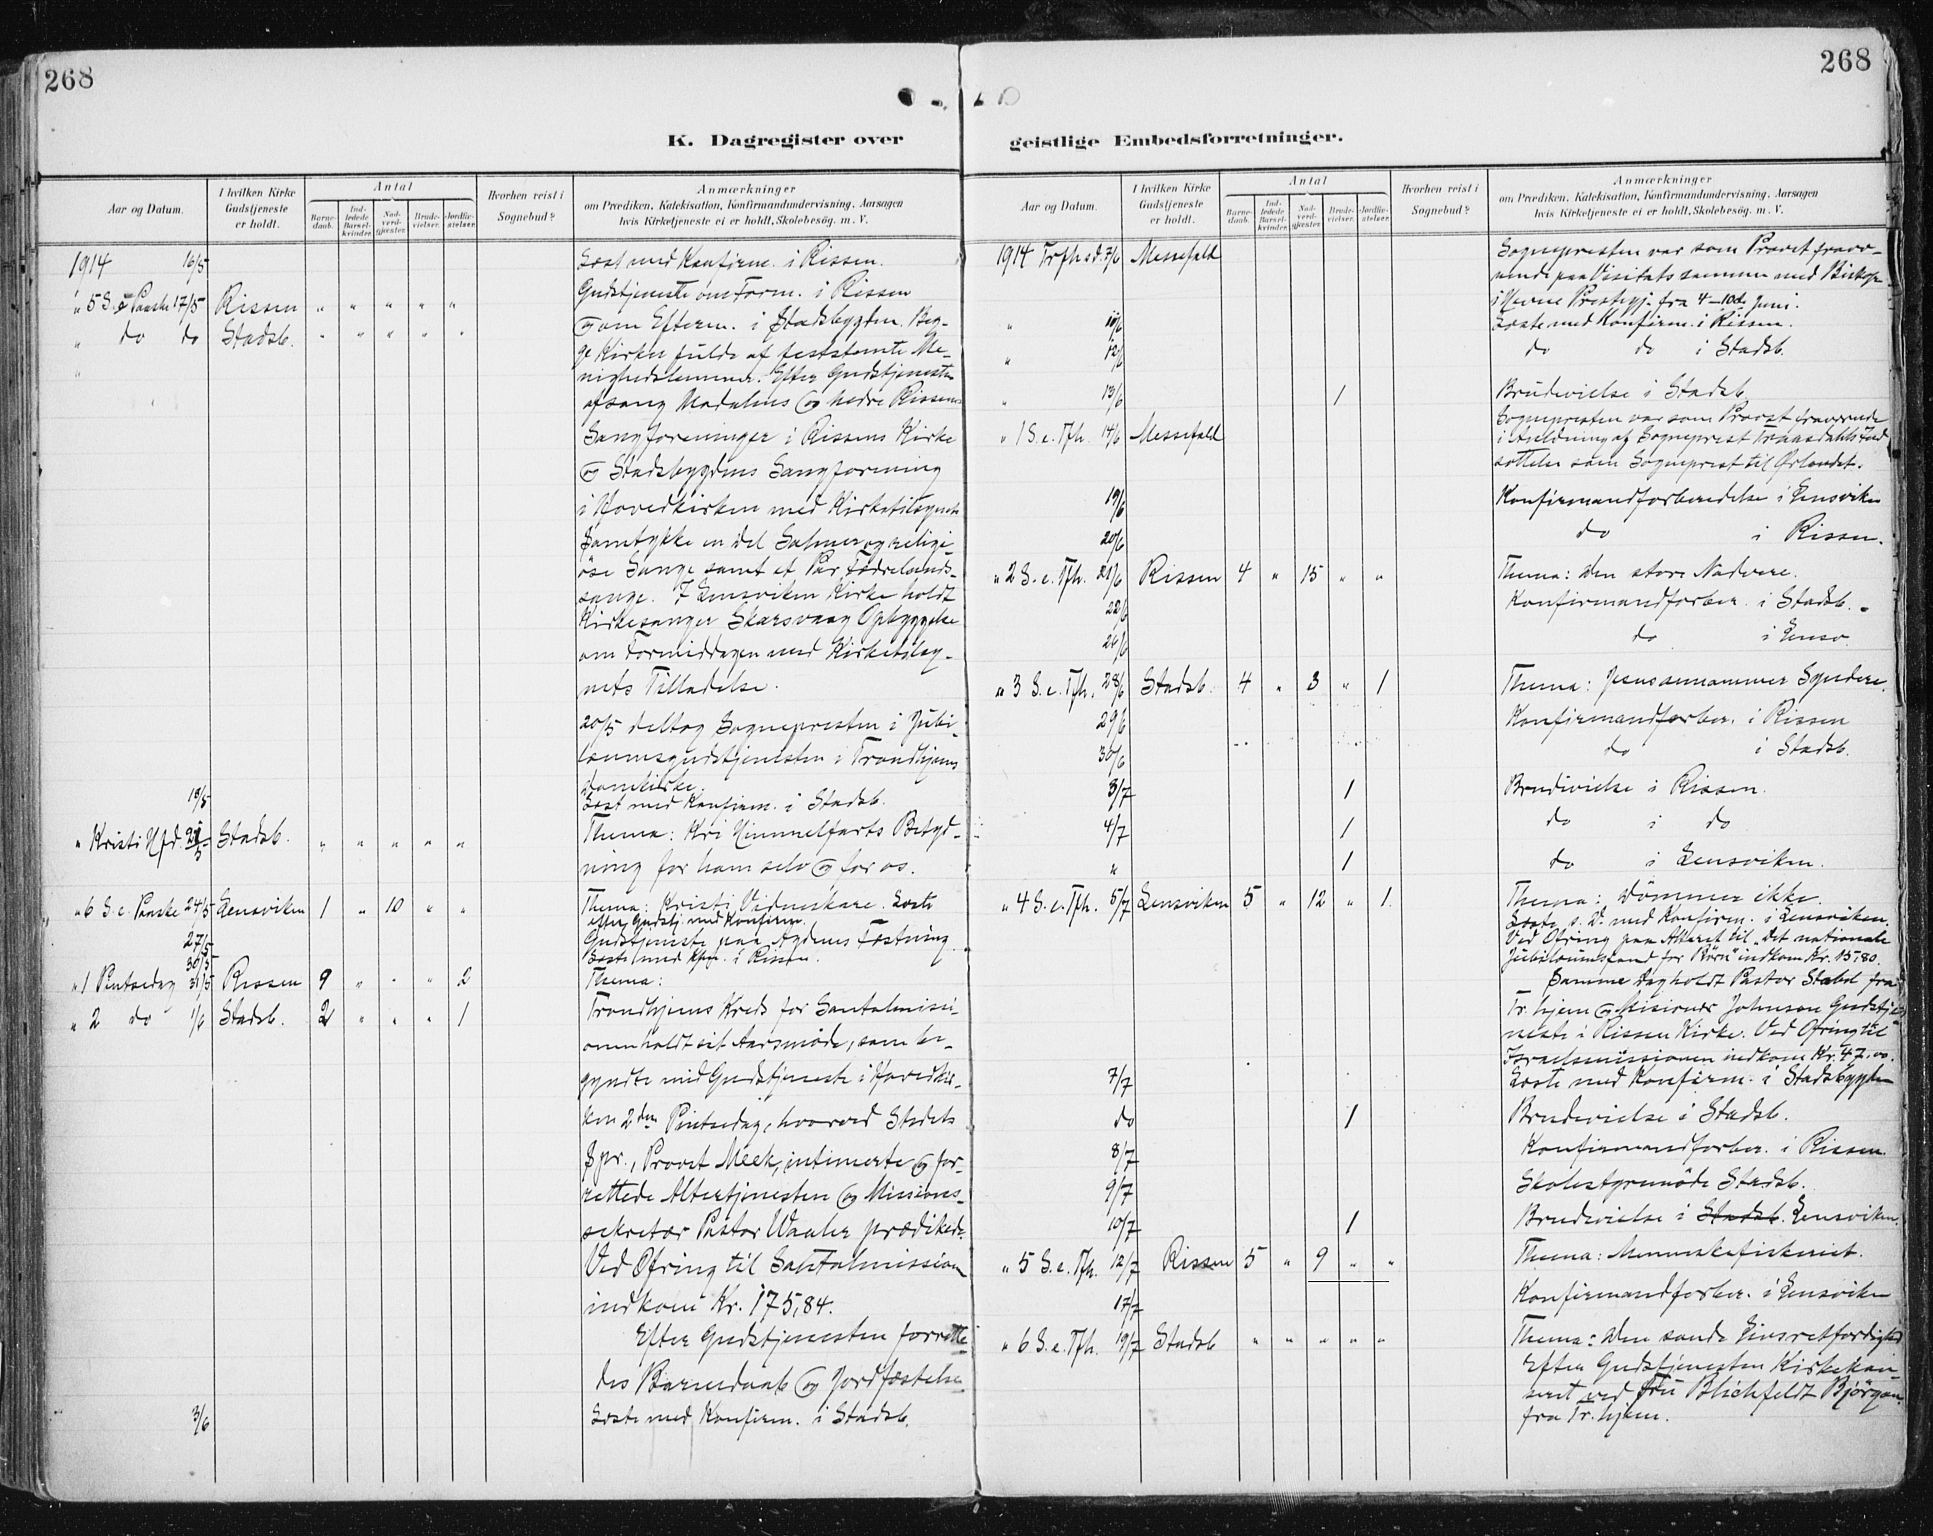 268
K. Dagregister over
Aar og Datum.
I hvilken Kirke Gudstjeneste er holdt.
Antal
Barnedaab.
Indledede Barselkvinder.
Nadverdgjester.
Brudevielser.
Jordfæstelser.
Hvorhen reist i Sognebud?
Anmærkninger
om Prædiken, Katekisation, Konfirmandundervisning, Aarsagen
hvis Kirketjeneste ei er holdt, Skolebesøg. m. V.
1914 16/5 Læst med Konfirm. i Rissen.
Gudstjeneste om Form. i Rissen
" 5 S. e Paaske 17/5 Rissen " " " " "
og om Efterm. i Stadsbygden. Beg-
" do do Stadsb. " " " " "
ge Kirker fulde af feststemte Me-
nighedslemmer. Efter Gudstjenesten
afsang Modalens og nedre Rissens
Sangforeninger i Rissens Kirke
og Stadsbygdens Sangforening
i Hovedkirken med Kirketilsynets
Samtykke en del Salmer og religi-
øse Sange samt et Par Fædrelands-
sange. I Lensviken Kirke holdt
Kirkesanger Skarsvaag Opbyggelse
om Formiddagen med Kirketilsy-
nets Tilladelse.
20/5 deltog Sognepresten i Jubi-
læumsgudstjenesten i Trondhjems
Domkirke.
18/5 Læst med Konfirm. i Stadsb.
" Kristi Hfd. 21/5 Stadsb. " " " " " Thema: Kri Himmelfarts Betyd-
ning for ham selv og for os.
" 6 S. e. Paaske 24/5 Lensviken 1 " 10 " " Thema: Kristi Vidneskare. Læste
efter Gudstj. med Konfirm.
27/5 Gudstjeneste paa Agdenes Fæstning.
30/5 Læst med Kfm. i Rissen.
" 1 Pintsedag 31/5 Rissen 9 " " " 2 Thema:
" 2 do 1/6 Stadsb. 2 " " " 1 Trondhjems Kreds for Santalmissi-
onen holdt sit Aarsmøde, som be-
gyndte med Gudstjeneste i Hovedkir-
ken 2den Pintsedag, hvorved Stedets
Spr., Provst Meek, intimerte og for-
rettede Altertjenesten og Missions-
sekretær Pastor Waaler prædikede.
Ved Ofring til Santalmission
indkom Kr. 175,84.
Efter Gudstjenesten forrette-
des Barnedaab og Jordfæstelse
3/6 Læste med Konfirm. i Stadsb.
268
geistlige Embedsforretninger.
Aar og Datum.
I hvilken Kirke Gudstjeneste er holdt.
Antal
Barnedaab.
Indledede Barselkvinder.
Nadverdgjester.
Brudevielser.
Jordfæstelser.
Hvorhen reist i Sognebud?
Anmærkninger
om Prædiken, Katekisation, Konfirmandundervisning, Aarsagen
hvis Kirketjeneste ei er holdt, Skolebesøg. m. V.
1914 Trfh sd. 7/6 Messefald Sognepresten var som Provst fravæ-
rende paa Visitats sammen med Biskop
i Hevne Prestegj. fra 4-10de Juni.
" 10/6 Læste med Konfirm. i Rissen.
" 12/6 do do i Stadsb.
" 13/6 1 Brudevielse i Stadsb.
Sognepresten var som Provst fraværende
" 1 S. e. Tfh. 14/6 Messefald i Anledning af Sogneprest
som Sogneprest til Ørlandet.
19/6 Konfirmandforberedelse i Lensviken
20/6 do i Rissen.
" 2 S. e. Tfh. 21/6 Rissen 4 " 15 " " Thema: Den store Nadvere.
22/6 Konfirmandforber. i Stadsb.
26/6 do i Lensv.
" 3 S. e. Tfh. 28/6 Stadsb. 4 " 3 " 1 Thema: Jesus annammer Syndere.
29/6 Konfirmandforber. i Rissen
30/6 do i Stadsb.
3/7 1 Brudevielse i Rissen.
4/7 1 do i do
" 1 do i Lensviken.
" 4 S. e. Tfh. 5/7 Lensviken 5 " 12 " 1 Thema: Dømmer ikke.
Læste s. D. med Konfirm. i Lensviken.
Ved Ofring paa Alteret til "Det nationale
Jubilæumsfond for Børn" indkom Kr. 15,80.
Samme Dag holdt Pastor Stabel fra
Tr.hjem og Misionær Johnson Gudstje-
neste i Rissen Kirke. Ved Ofring til
Israelsmissionen indkom Kr. 47.00
7/7 Læste med Konfirm. i Stadsbygden
do 1 Brudevielse i Stadsb.
8/7 Konfirmandforber. i Rissen.
9/7 Skolestyremøde Stadsb.
10/7 1 Brudevielse i Stadsb. Lensviken.
" 5 S. e. Tfh. 12/7 Rissen 5 " 9 " " Thema: Menneskefiskeriet.
17/7 Konfirmandforber. i Lensviken
" 6 S. e. Tfh. 19/7 Stadsb " " " " " Thema: Den sande Livsretfærdighed
Efter Gudstjenesten Kirkekon-
sert ved Fru Blichfeldt Bjørgan
fra Tr.hjem.